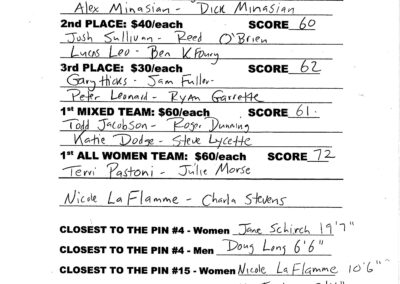 Alex Minasian - Dick Minasian
2nd PLACE: $40/each SCORE 60
Josh Sullivan - Reed O'Brien
Lucas Leo - Ben K Foury
3rd PLACE: $30/each SCORE 62
Gary Hicks - Sam Fuller
Peter Leonard - Ryan Garrette
1st MIXED TEAM: $60/each SCORE 61.
Todd Jacobson - Roger Dunning
Katie Dodge - Steve Lycette
1st ALL WOMEN TEAM: $60/each SCORE 72
Terri Pastoni - Julie Morse
Nicole LaFlamme - Charla Stevens
CLOSEST TO THE PIN #4 - Women Jane Schirch 19'7"
CLOSEST TO THE PIN #4 - Men Doug Long 6'6"
CLOSEST TO THE PIN #15 - Women Nicole LaFlamme 10'6"